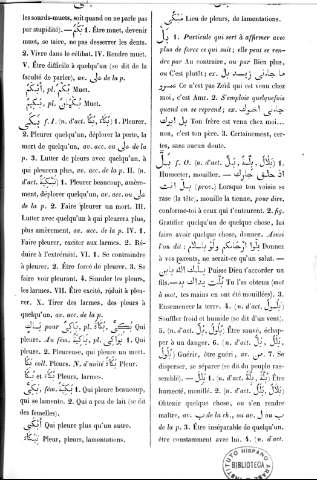 les sourds-muets, soit quand on ne parle pas
par stupidité). — بَكُمَ I. Être muet, devenir
muet, se taire, ne pas desserrer les dents.
2. Vivre dans le célibat. IV. Rendre muet.
V. Être difficile à quelqu'un (se dit de la
faculté de parler), av. على de la p.
أَبْكَمُ, pl. بُكْمٌ Muet.
بَكِيمٌ, pl. Muet.
بَكَى f. I. (n. d'act. بُكَاءٌ, بُكًى) 1. Pleurer.
2. Pleurer quelqu'un, déplorer la perte, la
mort de quelqu'un, av. acc. ou على de la
p. 3. Lutter de pleurs avec quelqu'un, à
qui pleurera plus, av. acc. de la p. II. (n.
d'act. تَبْكِيَةٌ) 1. Pleurer beaucoup, amère-
ment, déplorer quelqu'un, av. acc. ou على
de la p. 2. Faire pleurer un mort. III.
Lutter avec quelqu'un à qui pleurera plus,
plus amèrement, av. acc. de la p. IV. 1.
Faire pleurer, exciter aux larmes. 2. Ré-
duire à l'extrémité. VI. 1. Se contraindre
à pleurer. 2. Être forcé de pleurer. 3. Se
faire voir pleurant. 4. Simuler les pleurs,
les larmes. VII. Être excité, réduit à pleu-
rer. X. Tirer des larmes, des pleurs à
quelqu'un, av. acc. de la p.
بَاكٍ pour بَاكِيٌ, pl. بُكَاةٌ, بُكِيٌّ Qui
pleure. Au fém. بَاكِيَةٌ, pl. بَوَاكِي 1. Qui
pleure. 2. Pleureuse, qui pleure un mort.
coll. Pleurs. N. d'unité Pleur.
بُكَاءٌ et بُكًا Pleurs, larmes.
fém. 1. Qui pleure beaucoup,
qui se lamente. 2. Qui a peu de lait (se dit
des femelles).
أَبْكَى Qui pleure plus qu'un autre.
Pleur, pleurs, lamentations.
مَبْكًى Lieu de pleurs, de lamentations.
بَلْ 1. Particule qui sert à affirmer avec
plus de force ce qui suit; elle peut se ren-
dre par Au contraire, ou par Bien plus,
ou C'est plutôt; ex. ما جاءنى زيد بل
عمرو Ce n'est pas Zeid qui est venu chez
moi, c'est Amr. 2. S'emploie quelquefois
quand on se reprend; ex. جاءنى اخوك
بل ابوك Ton frère est venu chez moi...
non, c'est ton père. 3. Certainement, cer-
tes, sans aucun doute.
بَلَّ f. O. (n. d'act. بَلٌّ, بِلَّةٌ, بَلَلٌ) 1.
Humecter, mouiller. — اذا حلق جارك
بل انت (prov.) Lorsque ton voisin se
rase (la tête), mouille la tienne, pour dire,
conforme-toi à ceux qui t'entourent. 2. fig.
Gratifier quelqu'un de quelque chose, lui
faire avoir quelque chose, donner. Ainsi
l'on dit: بلوا ارحامكم ولو بالسلام Donnez
à vos parents, ne serait-ce qu'un salut. —
بلك الله بابن Puisse Dieu t'accorder un
fils. — بلت يداك Tu l'as obtenu (mot
à mot, tes mains en ont été mouillées). 3.
Ensemencer la terre. 4. (n. d'act. بُلُولٌ)
Souffler froid et humide (se dit d'un vent).
5. (n. d'act. بَلٌّ, بُلُولٌ) Être sauvé, échap-
per à un danger. 6. (n. d'act. بَلٌّ, بَلَلٌ,
بُلُولٌ) Guérir, être guéri, av. من. 7. Se
disperser, se séparer (se dit du peuple ras-
semblé). — بَلَّ 1. (n. d'act. بَلَلٌ) Être
humecté, mouillé. 2. (n. d'act.
Obtenir quelque chose, ou s'en rendre
maître, av. ب de la ch., ou av. ل ou ب
de la p. 3. Être inséparable de quelqu'un,
être constamment avec lui. 4. (n. d'act.
INSTITUTO HISPANO
BIBLIOTECA